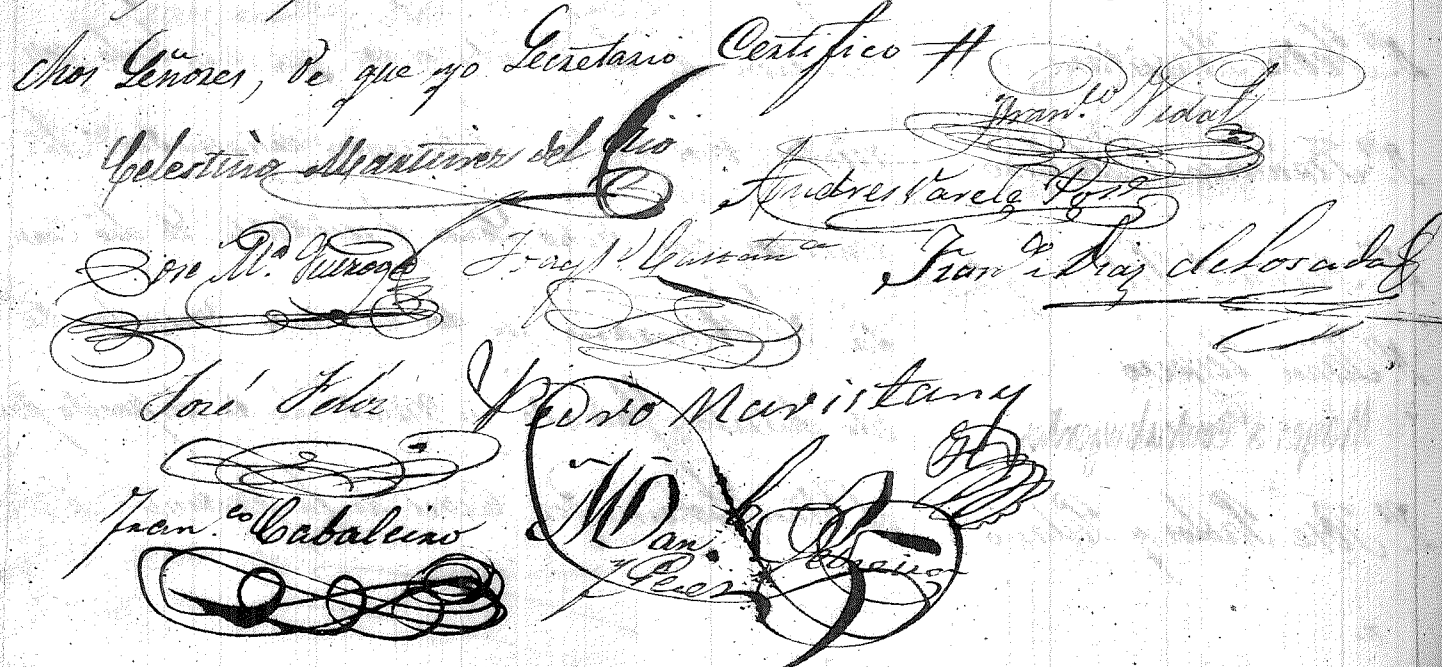 chos Señores, de que yo Secretario Certifico #
Fran.co Vidal
Celestino Martinez del Rio
Andres Varela
José M.a Quiroga
Fran.co Diaz de Losada
José Feliz
Pedro Maristany
Fran.co Cabaleiro
Man.
Perez